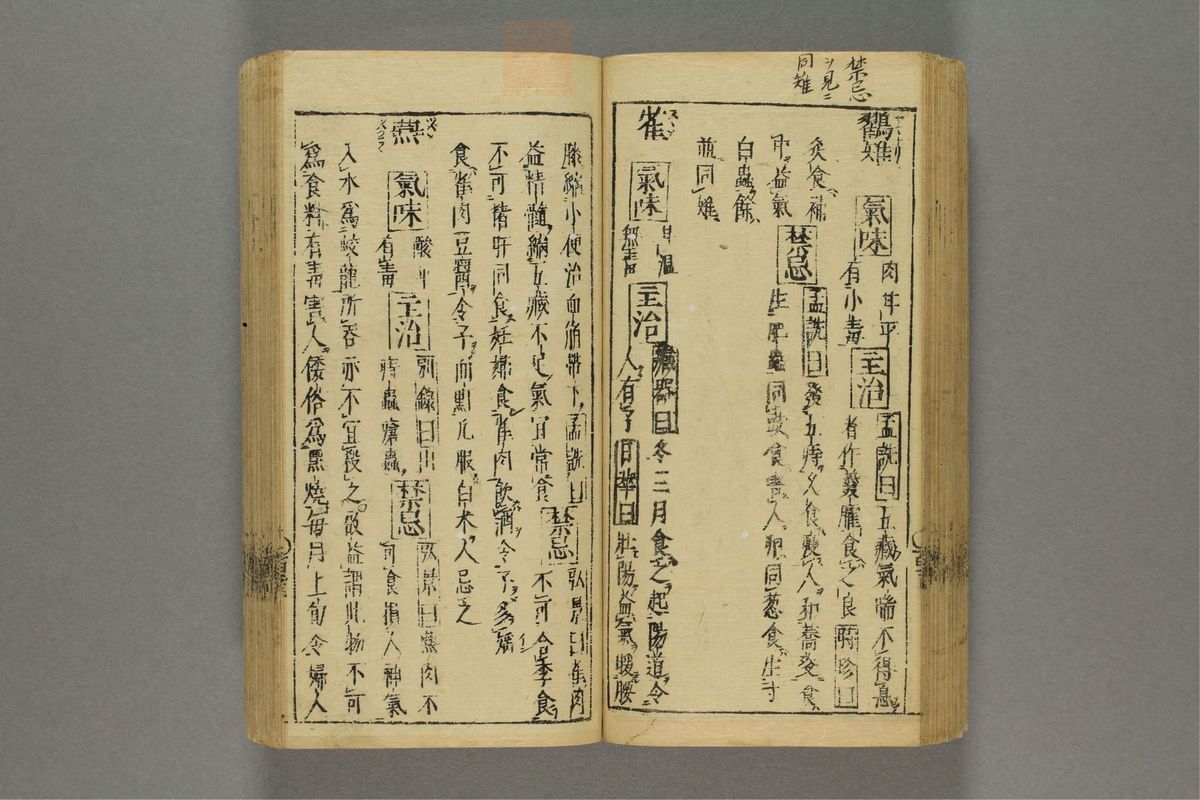 禁忌
ソ見ニ
同雉
鷭雉
氣味 肉甘平
有小毒 主治 孟詵曰五藏氣喘不得息
者作羹臛食之良 時珍曰
炙食補
中益氣 禁忌 孟詵曰發五痔久食瘦人和蕎麥食
生肥蟲同豉食害人卵同葱食生寸
白蟲餘
並同雉
雀 氣味 甘温
無毒 主治 藏器曰冬三月食之起陽道令
人有子 日華曰壯陽益氣暖腰
膝縮小便治血崩帶下孟詵曰
益精髓續五藏不足氣宜常食 禁忌 弘景曰雀肉
不可合李食
不可諸肝同食妊婦食雀肉飲酒令子多婬
食雀肉豆醬令子面䵟凡服白朮人忌之
燕 氣味 酸平
有毒 主治 別錄曰出
痔蟲瘡蟲 禁忌 弘景曰燕肉不
可食損人神氣
入水爲蛟龍所呑亦不宜殺之啟益謂此物不可
爲食料有毒害人倭俗爲黑燒每月上旬令婦人